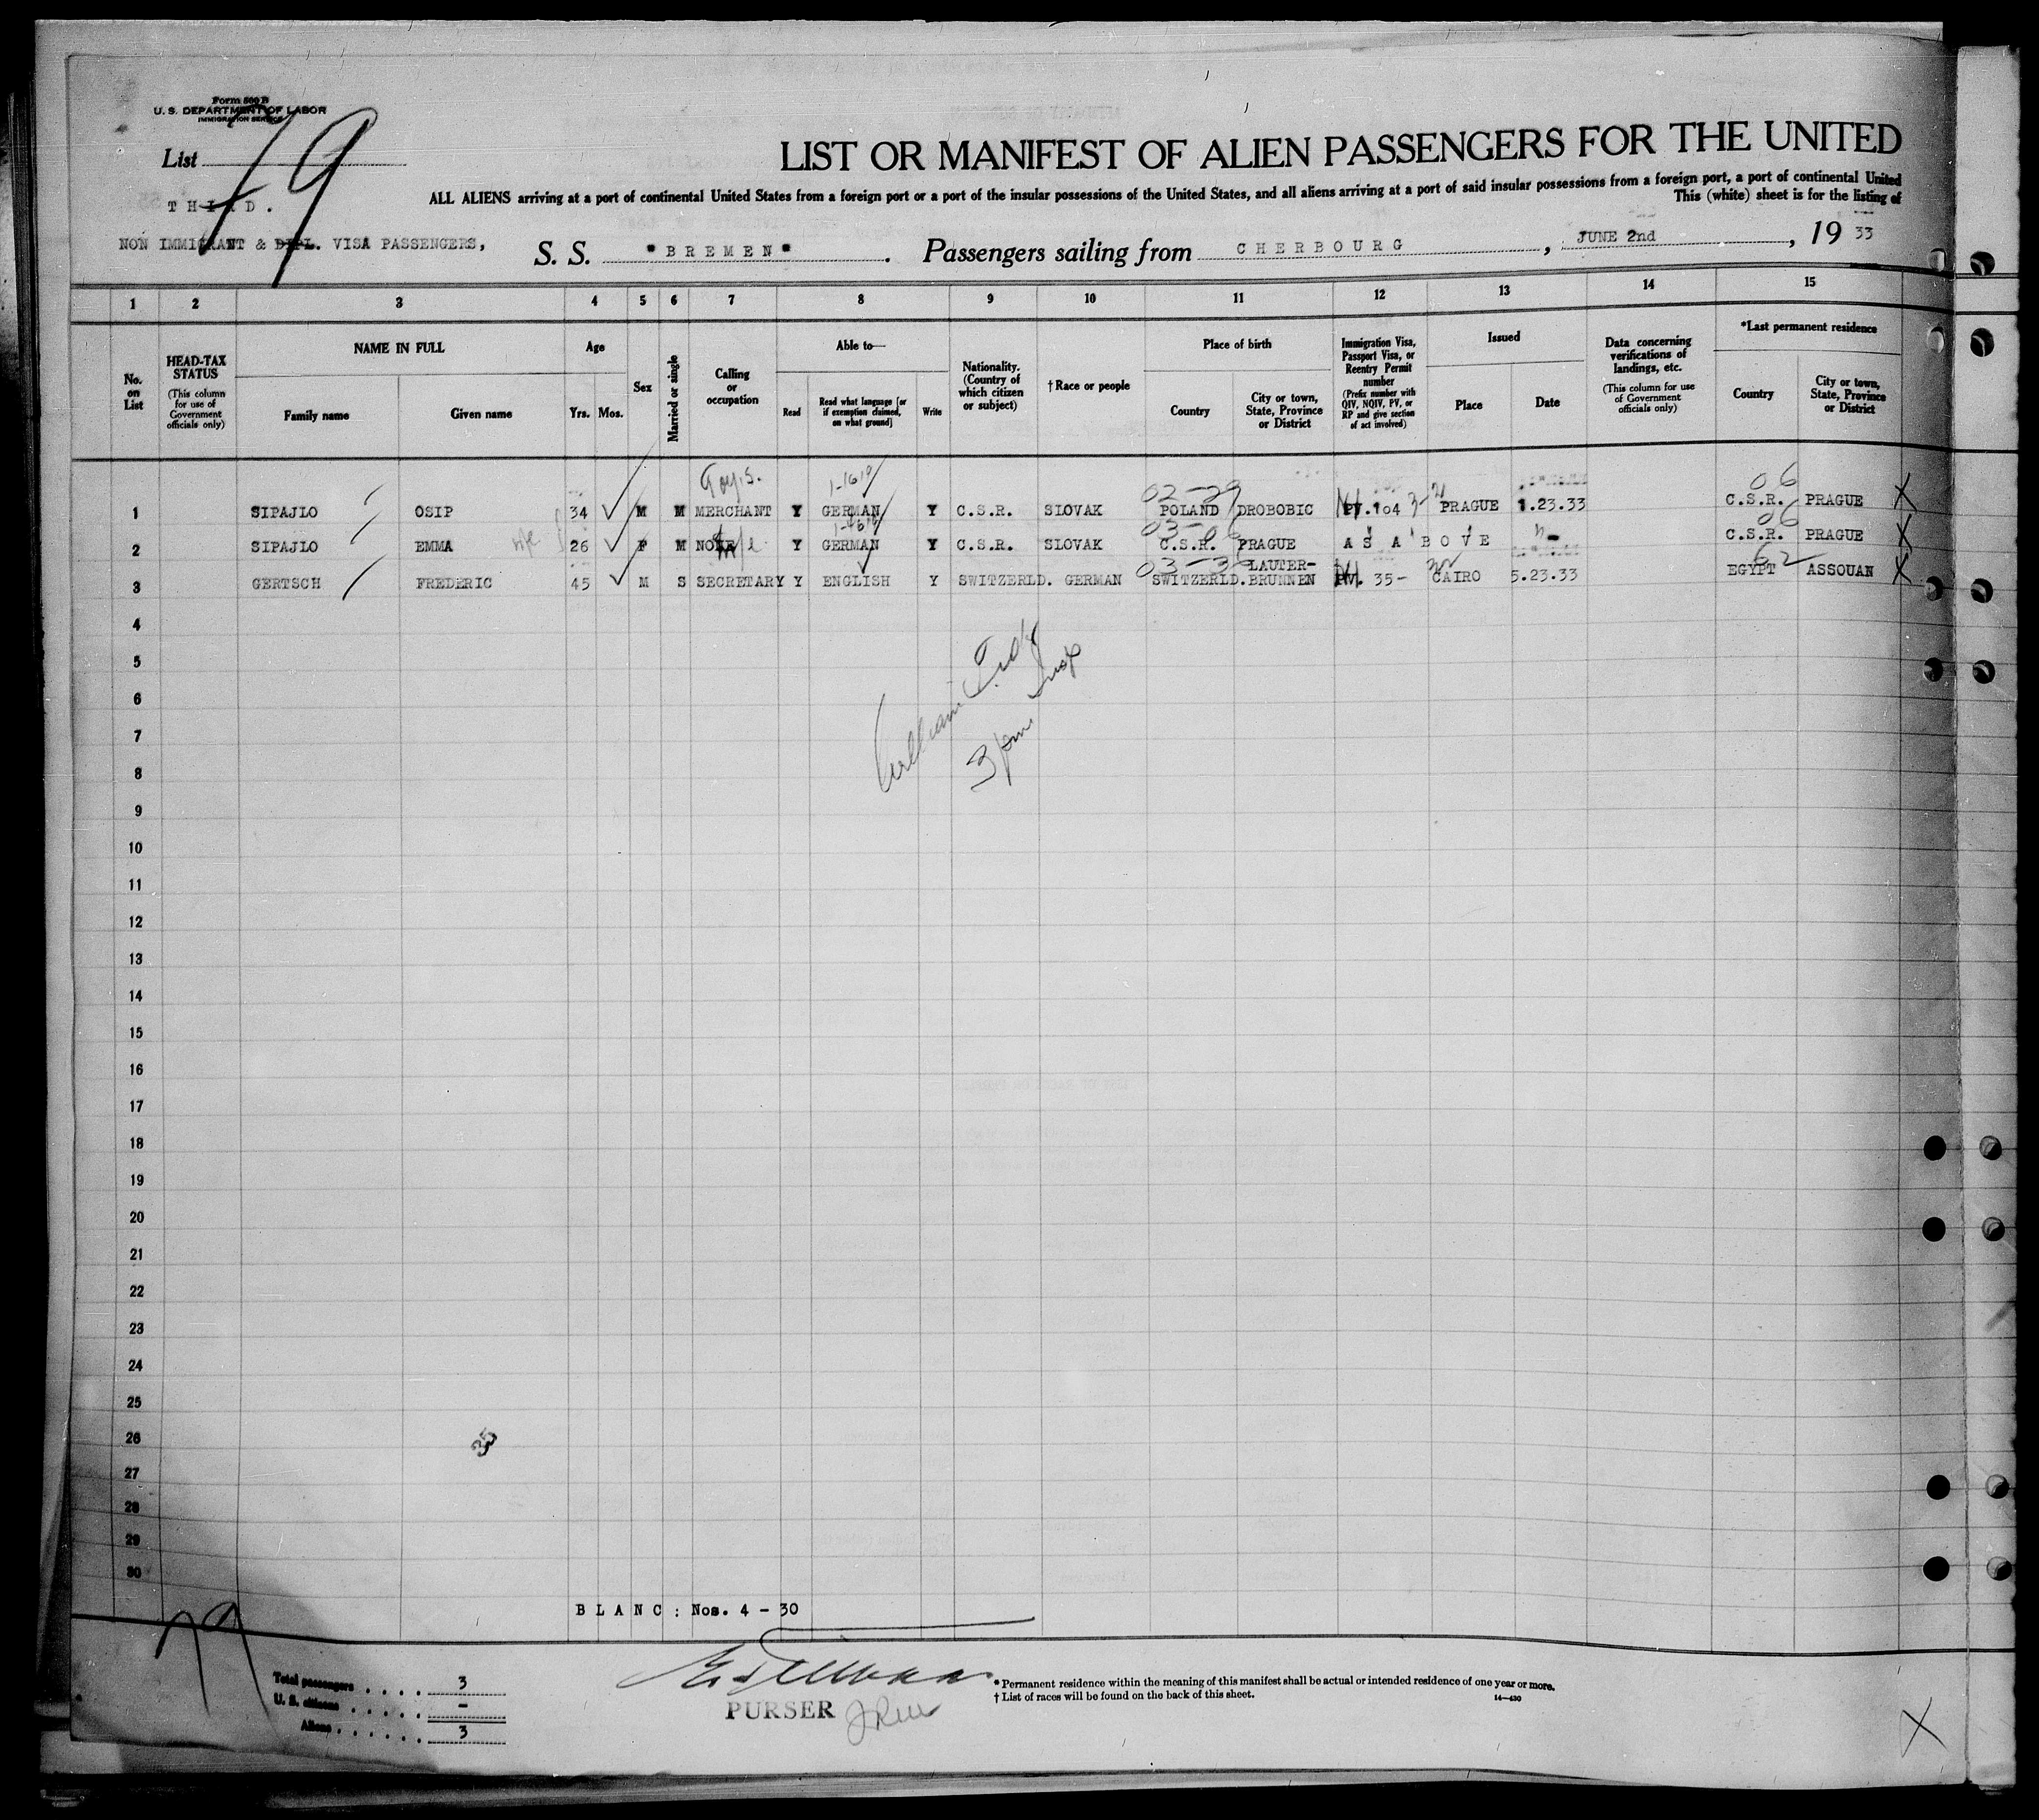 Form 500 B
U. S. DEPARTMENT OF LABOR
IMMIGRATION SERVICE
List 79
THIRD.
NON IMMIGRANT & DIPL. VISA PASSENGERS,
LIST OR MANIFEST OF ALIEN PASSENGERS FOR THE UNITED
ALL ALIENS arriving at a port of continental United States from a foreign port or a port of the insular possessions of the United States, and all aliens arriving at a port of said insular possessions from a foreign port, a port of continental United
This (white) sheet is for the listing of
S. S. "BREMEN". Passengers sailing from CHERBOURG, JUNE 2nd, 19 33
1 2 3 4 5 6 7 8 9 10 11 12 13 14 15
No. on List
HEAD-TAX STATUS
(This column for use of Government officials only)
NAME IN FULL
Family name
Given name
Age
Yrs. Mos.
Sex
Married or single
Calling or occupation
Able to—
Read
Read what language [or if exemption claimed, on what ground]
Write
Nationality. (Country of which citizen or subject)
†Race or people
Place of birth
Country
City or town, State, Province or District
Immigration Visa, Passport Visa, or Reentry Permit number
(Prefix number with QIV, NQIV, PV, or RP and give section of act involved)
Issued
Place
Date
Data concerning verifications of landings, etc.
(This column for use of Government officials only)
*Last permanent residence
Country
City or town, State, Province or District
1-1610 02-29 06
1 SIPAJLO OSIP 34 M M MERCHANT Y GERMAN Y C.S.R. SLOVAK POLAND DROBOBIC PV.104 3-2 PRAGUE 1.23.33 C.S.R. PRAGUE X
03-06 06
2 SIPAJLO EMMA 26 F M NONE Y GERMAN Y C.S.R. SLOVAK C.S.R. PRAGUE AS ABOVE C.S.R. PRAGUE X
03-39 62
3 GERTSCH FREDERIC 45 M S SECRETARY Y ENGLISH Y SWITZERLD. GERMAN SWITZERLD. LAUTER-BRUNNEN PV. 35- CAIRO 5.23.33 EGYPT ASSOUAN X
4
5
6
7
William
3 pm
8
9
10
11
12
13
14
15
16
17
18
19
20
21
22
23
24
25
26
35
27
28
29
30
BLANC: Nos. 4 - 30
79
Total passengers . . . . 3
U. S. citizens . . . . . -
Aliens . . . . . . 3
PURSER
* Permanent residence within the meaning of this manifest shall be actual or intended residence of one year or more.
† List of races will be found on the back of this sheet.
14—430
X